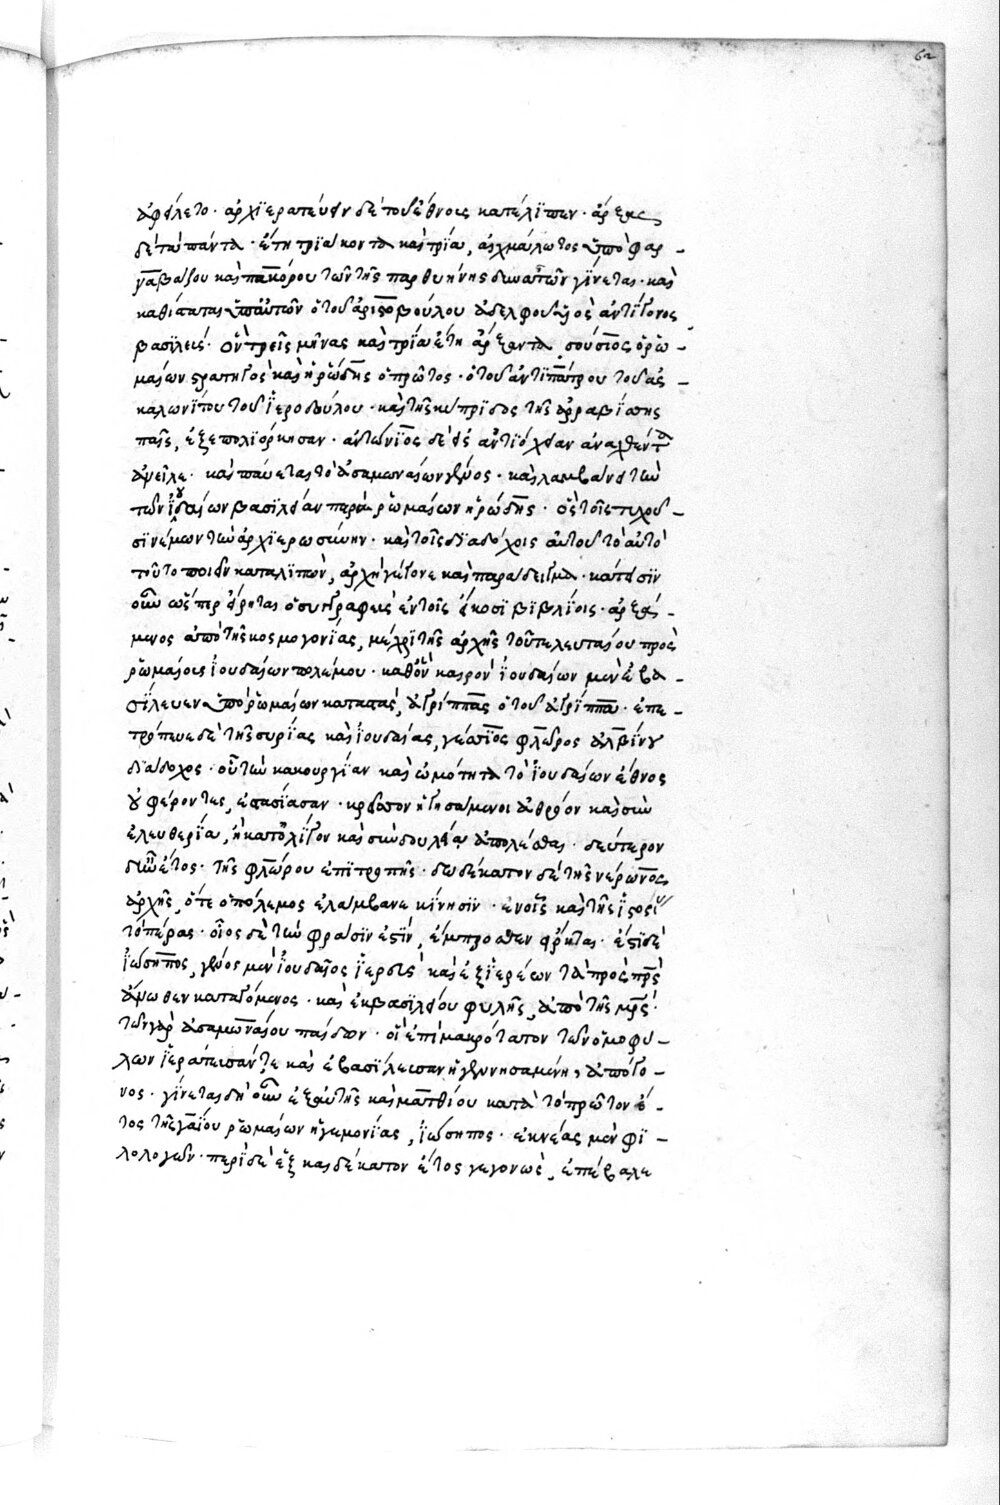 62
ἀφείλετο· ἀρχϊερατεύειν δὲ τοῦ ἔθνους κατέλϊπεν· ἄρξας
δὲ τὰ πάντα· ἔτη τρϊάκοντα καὶ τρία, αἰχμάλωτος ὑπὸ φαρ-
ναβάζου καὶ πακόρου τῶν τῆς παρθυηνῆς δυνατῶν γίνεται· καὶ
καθίσταται ὑπ' αὐτῶν ὁ τοῦ ἀριστοβούλου ἀδελφοῦ υἱὸς ἀντίγονος
βασιλεύς· ὃν τρεῖς μῆνας καὶ τρία ἔτη ἄρξαντα, σούσιος ὁ ῥω-
μαίων στρατηγὸς καὶ ἡρώδης ὁ πρῶτος· ὁ τοῦ ἀντϊπάτρου τοῦ ἀσ-
καλωνίτου τοῦ ἱεροδούλου· καὶ τῆς κυπρίδος τῆς ἀρραβίσσης
παῖς, ἐξεπολϊόρκησαν· ἀντώνιος δὲ εἰς ἀντϊόχειαν ἀναχθέντα
ἀνεῖλε· καὶ παύεται τὸ ἀσαμωναίων γένος· καὶ λαμβάνει τὴν
τῶν ϊουδαίων βασϊλείαν παρὰ ῥωμαίων ἡρώδης· ὃς τοῖς τυχοῦ-
σϊ νέμων τὴν ἀρχϊερωσύνην· καὶ τοῖς δϊαδόχοις αὐτοῦ τὸ αὐτὸ
τοῦτο ποιεῖν καταλϊπὼν, ἀρχηγὸς γέγονε καὶ παράδειγμα· κάτεισϊν
οὖν ὥσπερ εἴρηται ὁ συγγραφεὺς ἐν τοῖς εἴκοσϊ βϊβλίοις· ἀρξά-
μενος ἀπὸ τῆς κοσμογονίας, μέχρϊ τῆς ἀρχῆς τοῦ τελευταίου πρὸς
ῥωμαίους ϊουδαίων πολέμου· καθ' ὃν καιρὸν ϊουδαίων μὲν ἐβα-
σίλευεν ὑπὸ ῥωμαίων καταστὰς, ἀγρίππας ὁ τοῦ ἀγρίππα· ἐπε-
τρόπευε δὲ τῆς συρίας καὶ ϊουδαίας, γέσσιος φλῶρος ἀλβίνου
δϊάδοχος· οὗ τὴν κακουργίαν καὶ ὠμότητα τὸ ϊουδαίων ἔθνος
οὐ φέροντες, ἐστασίασαν· κρεῖττον ἡγησάμενοι ἀθρόον καὶ σὺν
ἐλευθερίᾳ, ἢ κατ' ὀλίγον καὶ σὺν δουλείᾳ ἀπολέσθαι· δεύτερον
δ' ἦν ἔτος· τῆς φλώρου ἐπϊτροπῆς· δωδέκατον δὲ τῆς νέρωνος
ἀρχῆς, ὅτε ὁ πόλεμος ἐλάμβανε κίνησϊν· ἐν οἷς καὶ τῆς ϊστορίας
τὸ πέρας· οἷος δὲ τὴν φράσϊν ἐστϊν, ἔμπροσθεν εἴρηται· ἔστϊ δὲ
ϊώσηπος, γένος μὲν ϊουδαῖος ϊερεὺς καὶ ἐξ ϊερέων τὰ πρὸς πατρὸς
ἄνωθεν καταγόμενος· καὶ ἐκ βασϊλείου φυλῆς, ἀπὸ τῆς μητρός·
τῶν γὰρ ἀσαμωναίου παίδων· οἳ ἐπὶ μακρότατον τῶν ὁμοφύ-
λων ϊεράτευσάν τε καὶ ἐβασίλευσαν ἡ γεννησαμένη, ἀπόγο-
νος· γίνεται δὴ οὖν ἐξ αὐτῆς καὶ ματθίου κατὰ τὸ πρῶτον ἔ-
τος τῆς γαΐου ῥωμαίων ἡγεμονίας, ϊώσηπος· ἐκ νέας μὲν φϊ-
λολογῶν· περὶ δὲ ἓξ καὶ δέκατον ἔτος γεγονὼς, ἐπέβαλε